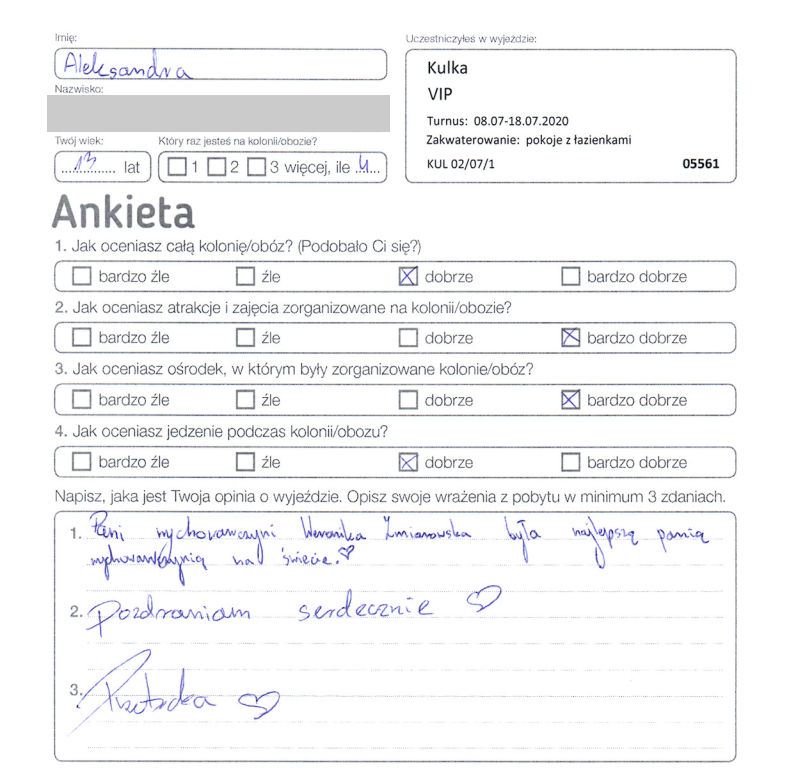 Imię:
Uczestniczyłeś w wyjeździe:
Aleksandra
Kulka
VIP
Turnus: 08.07-18.07.2020
Zakwaterowanie: pokoje z łazienkami
KUL 02/07/1 05561
Nazwisko:
Twój wiek: Który raz jesteś na kolonii/obozie?
13 lat 1 2 3 więcej, ile 4
Ankieta
1. Jak oceniasz całą kolonię/obóz? (Podobało Ci się?)
bardzo źle źle dobrze bardzo dobrze
2. Jak oceniasz atrakcje i zajęcia zorganizowane na kolonii/obozie?
bardzo źle źle dobrze bardzo dobrze
3. Jak oceniasz ośrodek, w którym były zorganizowane kolonie/obóz?
bardzo źle źle dobrze bardzo dobrze
4. Jak oceniasz jedzenie podczas kolonii/obozu?
bardzo źle źle dobrze bardzo dobrze
Napisz, jaka jest Twoja opinia o wyjeździe. Opisz swoje wrażenia z pobytu w minimum 3 zdaniach.
1. Pani wychowawczyni Weronika była najlepszą panią
wychowawczynią na świecie.
2. Pozdrawiam serdecznie
3.